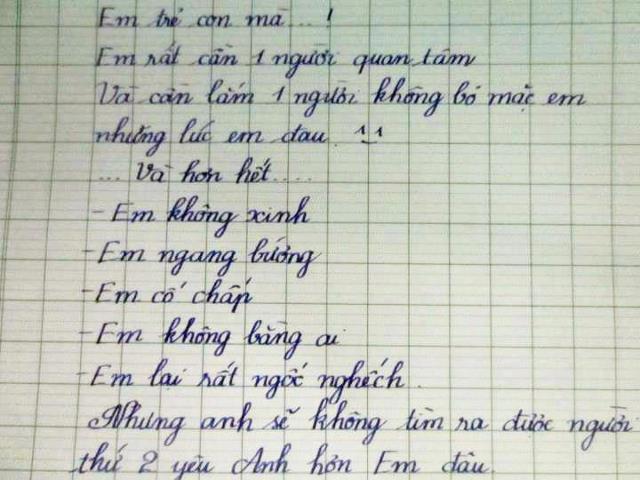 Em trẻ con mà...!
Em rất cần 1 người quan tâm
Và cần lắm 1 người không bỏ mặc em
những lúc em đau. 1_1
... Và hơn hết....
- Em không xinh
- Em ngang bướng
- Em cố chấp
- Em không bằng ai
- Em lại rất ngốc nghếch.
Nhưng anh sẽ không tìm ra được người
thứ 2 yêu Anh hơn Em đâu.